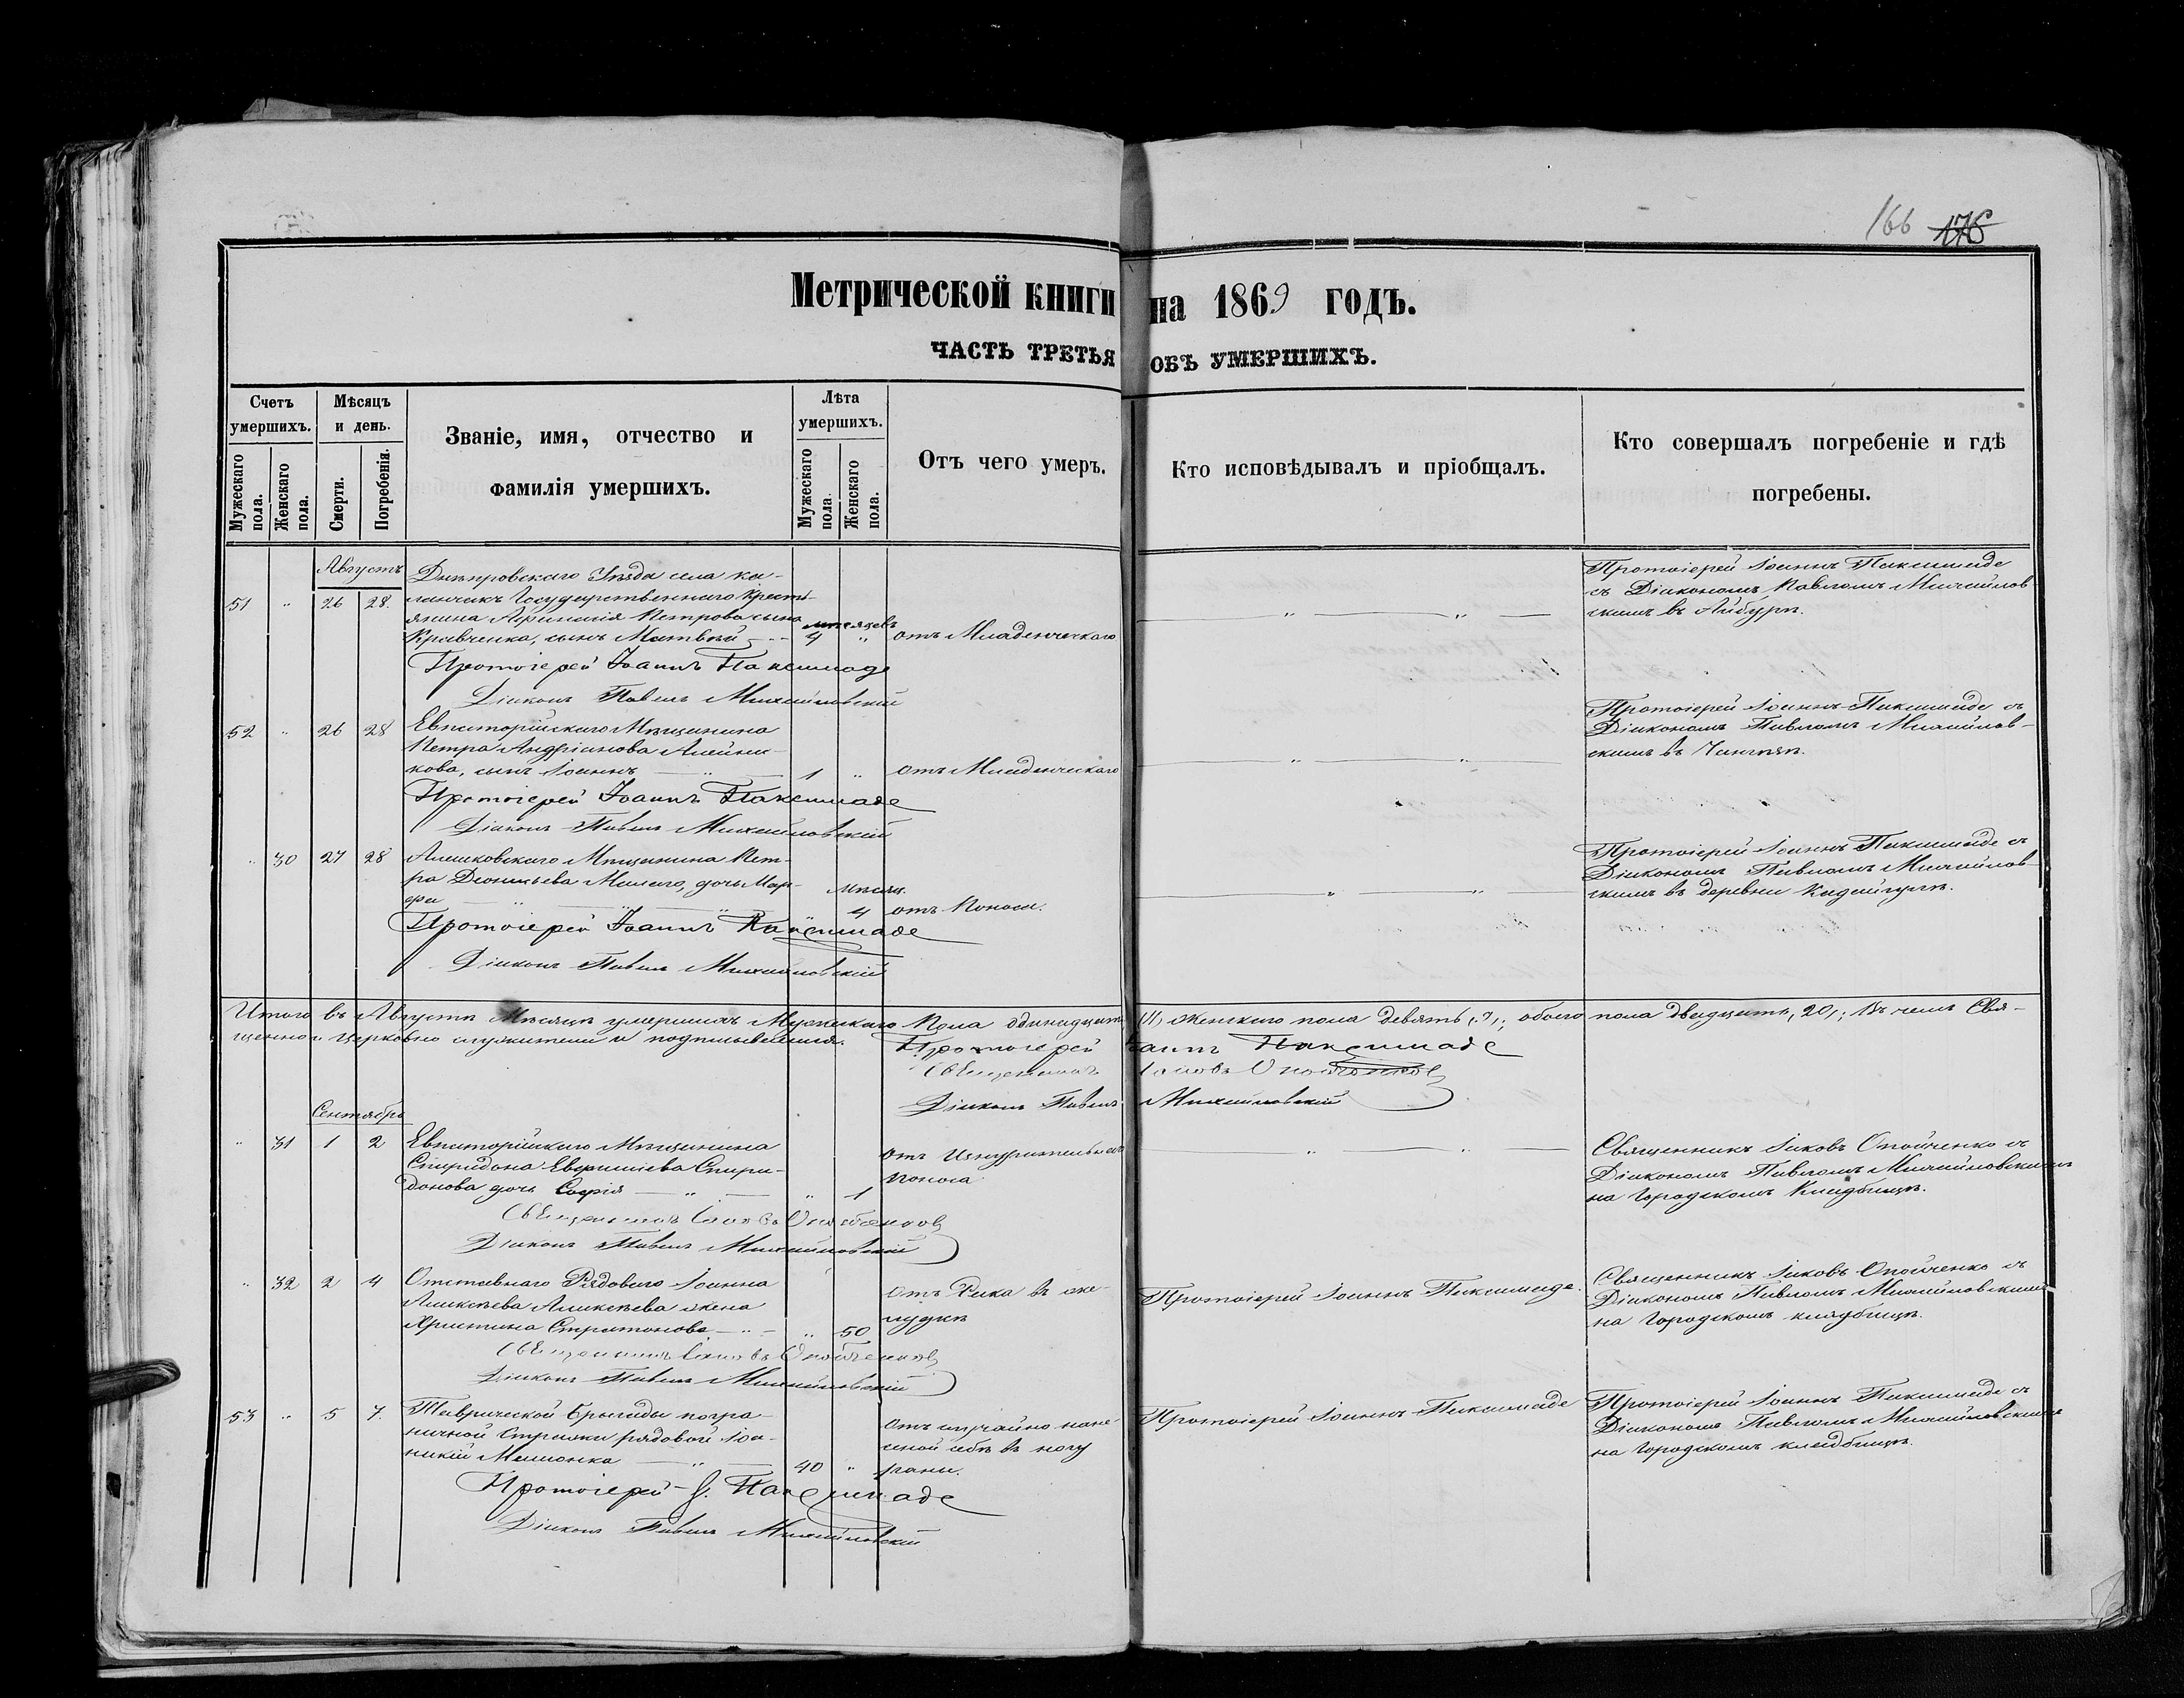 166 176
Метрической книги на 1869 годъ.
ЧАСТЬ ТРЕТЬЯ ОБЪ УМЕРШИХЪ.
Счетъ умершихъ.
Мужескаго пола.
Женскаго пола.
Мѣсяцъ и день.
Смерти.
Погребенія.
Званіе, имя, отчество и фамилія умершихъ.
Лѣта умершихъ.
Мужескаго пола.
Женскаго пола.
Отъ чего умеръ.
Кто исповѣдывалъ и пріобщалъ.
Кто совершалъ погребеніе и гдѣ погребены.
Августъ
51 " 26 28.
Днѣпровскаго Уѣзда села Ка-
ланчакъ Государственнаго Кресть-
янина Петрова сына
Кравченка, сынъ Матвѣй
мѣсяцевъ
4 "
отъ Младенческаго
Протоіерей Іоаннъ Паксимаде
съ Діакономъ Павломъ Михайлов
скимъ въ Айбурѣ.
Протоіерей Іоаннъ Паксимаде
Діаконъ Павелъ Михайловскій
52 " 26 28
Евпаторійскаго Мѣщанина
Петра Андріанова Алейни-
кова, сынъ Іоаннъ
1 "
отъ Младенческаго
Протоіерей Іоаннъ Паксимаде съ
Діакономъ Павломъ Михайлов-
скимъ въ
Протоіерей Іоаннъ Паксимаде
Діаконъ Павелъ Михайловскій
" 30 27 28
Алешковскаго Мѣщанина Пет-
ра Діонисьева Малаго, дочь Мар-
фа
мѣсяц.
" 4
отъ Поноса.
Протоіерей Іоаннъ Паксимаде съ
Діакономъ Павломъ Михайлов-
скимъ въ деревни
Протоіерей Іоаннъ Паксимаде
Діаконъ Павелъ Михайловскій
Итого въ Августѣ Мѣсяцѣ умершихъ Мужескаго Пола одинадцать (11) женскаго пола девять (9); обоего пола двадцать, 20,; въ чемъ Свя-
щенно и церковно служители и подписываемся.
Протоіерей Іоаннъ Паксимаде
Священникъ Іаковъ Опойченковъ
Діаконъ Павелъ Михайловскій
Сентябрь
" 31 1 2
Евпаторійскаго Мѣщанина
Спиридона Евфиміева Спири-
донова дочь Софія
" 1
отъ Изнурительнаго
поноса
Священникъ Іаковъ Опойченко съ
Діакономъ Павломъ Михайловскимъ
на Городскомъ Кладбищѣ.
Священникъ Іаковъ Опойченковъ
Діаконъ Павелъ Михайловскій
" 32 2 4
Отставнаго Рядоваго Іоанна
Алексѣева Алексѣева жена
Христина Стратонова
" 50
отъ Рака въ же-
лудкѣ
Протоіерей Іоаннъ Паксимаде.
Священникъ Іаковъ Опойченко съ
Діакономъ Павломъ Михайловскимъ
на Городскомъ кладбищѣ.
Священникъ Іаковъ Опойченковъ
Діаконъ Павелъ Михайловскій
53 " 5 7.
Таврической Бригады погра-
ничной Стражи рядовой Іоа-
никій
40 "
отъ случайно нане-
сеной себѣ въ ногу
раны.
Протоіерей Іоаннъ Паксимаде
Протоіерей Іоаннъ Паксимаде съ
Діакономъ Павломъ Михайловскимъ
на Городскомъ кладбищѣ.
Протоіерей І. Паксимаде
Діаконъ Павелъ Михайловскій